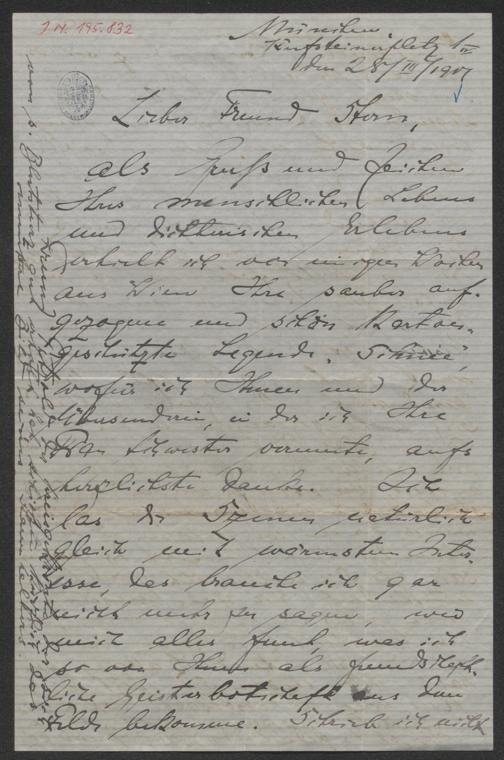 J.N. 195.832
München,
Kufsteinerplatz 1/IV
den 28/III/1917
Lieber Freund Stern,
als Gruß und Zeichen
Ihres menschlichen Lebens
und dichterischen Erlebens
erhielt ich vor einigen Wochen
aus Wien Ihre sauber auf-
gezogene und schön karton-
geschützte Legende,
wofür ich Ihnen und der
Übersenderin, in der ich Ihre
Frau Schwester vermute, aufs
herzlichste danke. Ich
las die Szenen natürlich
gleich mit wärmstem Inter-
esse, das brauche ich gar
nicht mehr zu sagen, wie
mich alles freut, was ich
so von Ihnen als freundschaft-
liche Geisterbotschaft aus dem
Felde bekomme. Schrieb ich nicht